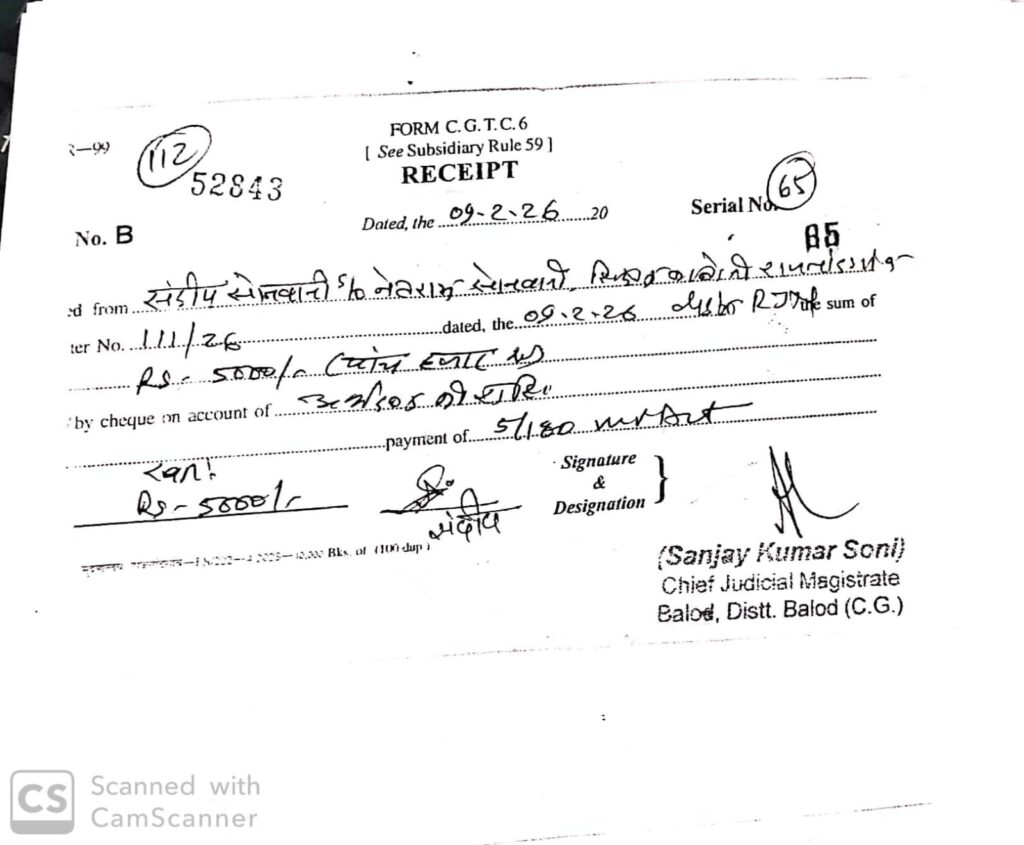 FORM C.G.T.C.6
२—99 112
[ See Subsidiary Rule 59 ]
52843
RECEIPT
Serial No. 65
Dated, the 09-2-26 20
No. B
85
ed from संदीप सोनवानी S/o नेतराम सोनवानी
ter No. 111/26 dated, the 09-2-26 the sum of
Rs - 5000/- (पांच हजार
by cheque on account of अर्थदंड की राशि
payment of 5/180 mv Act
Rs - 5000/-
संदीप
Signature
&
Designation
Bks. of (100 dup)
(Sanjay Kumar Soni)
Chief Judicial Magistrate
Balod, Distt. Balod (C.G.)
CS Scanned with
CamScanner